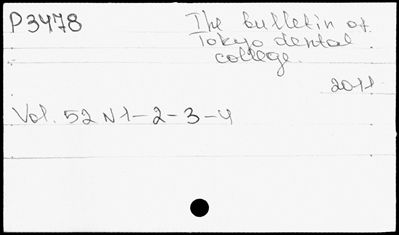 P3478 The bulletin of
Tokyo dental
college.
2011
Vol. 52 N 1-2-3-4